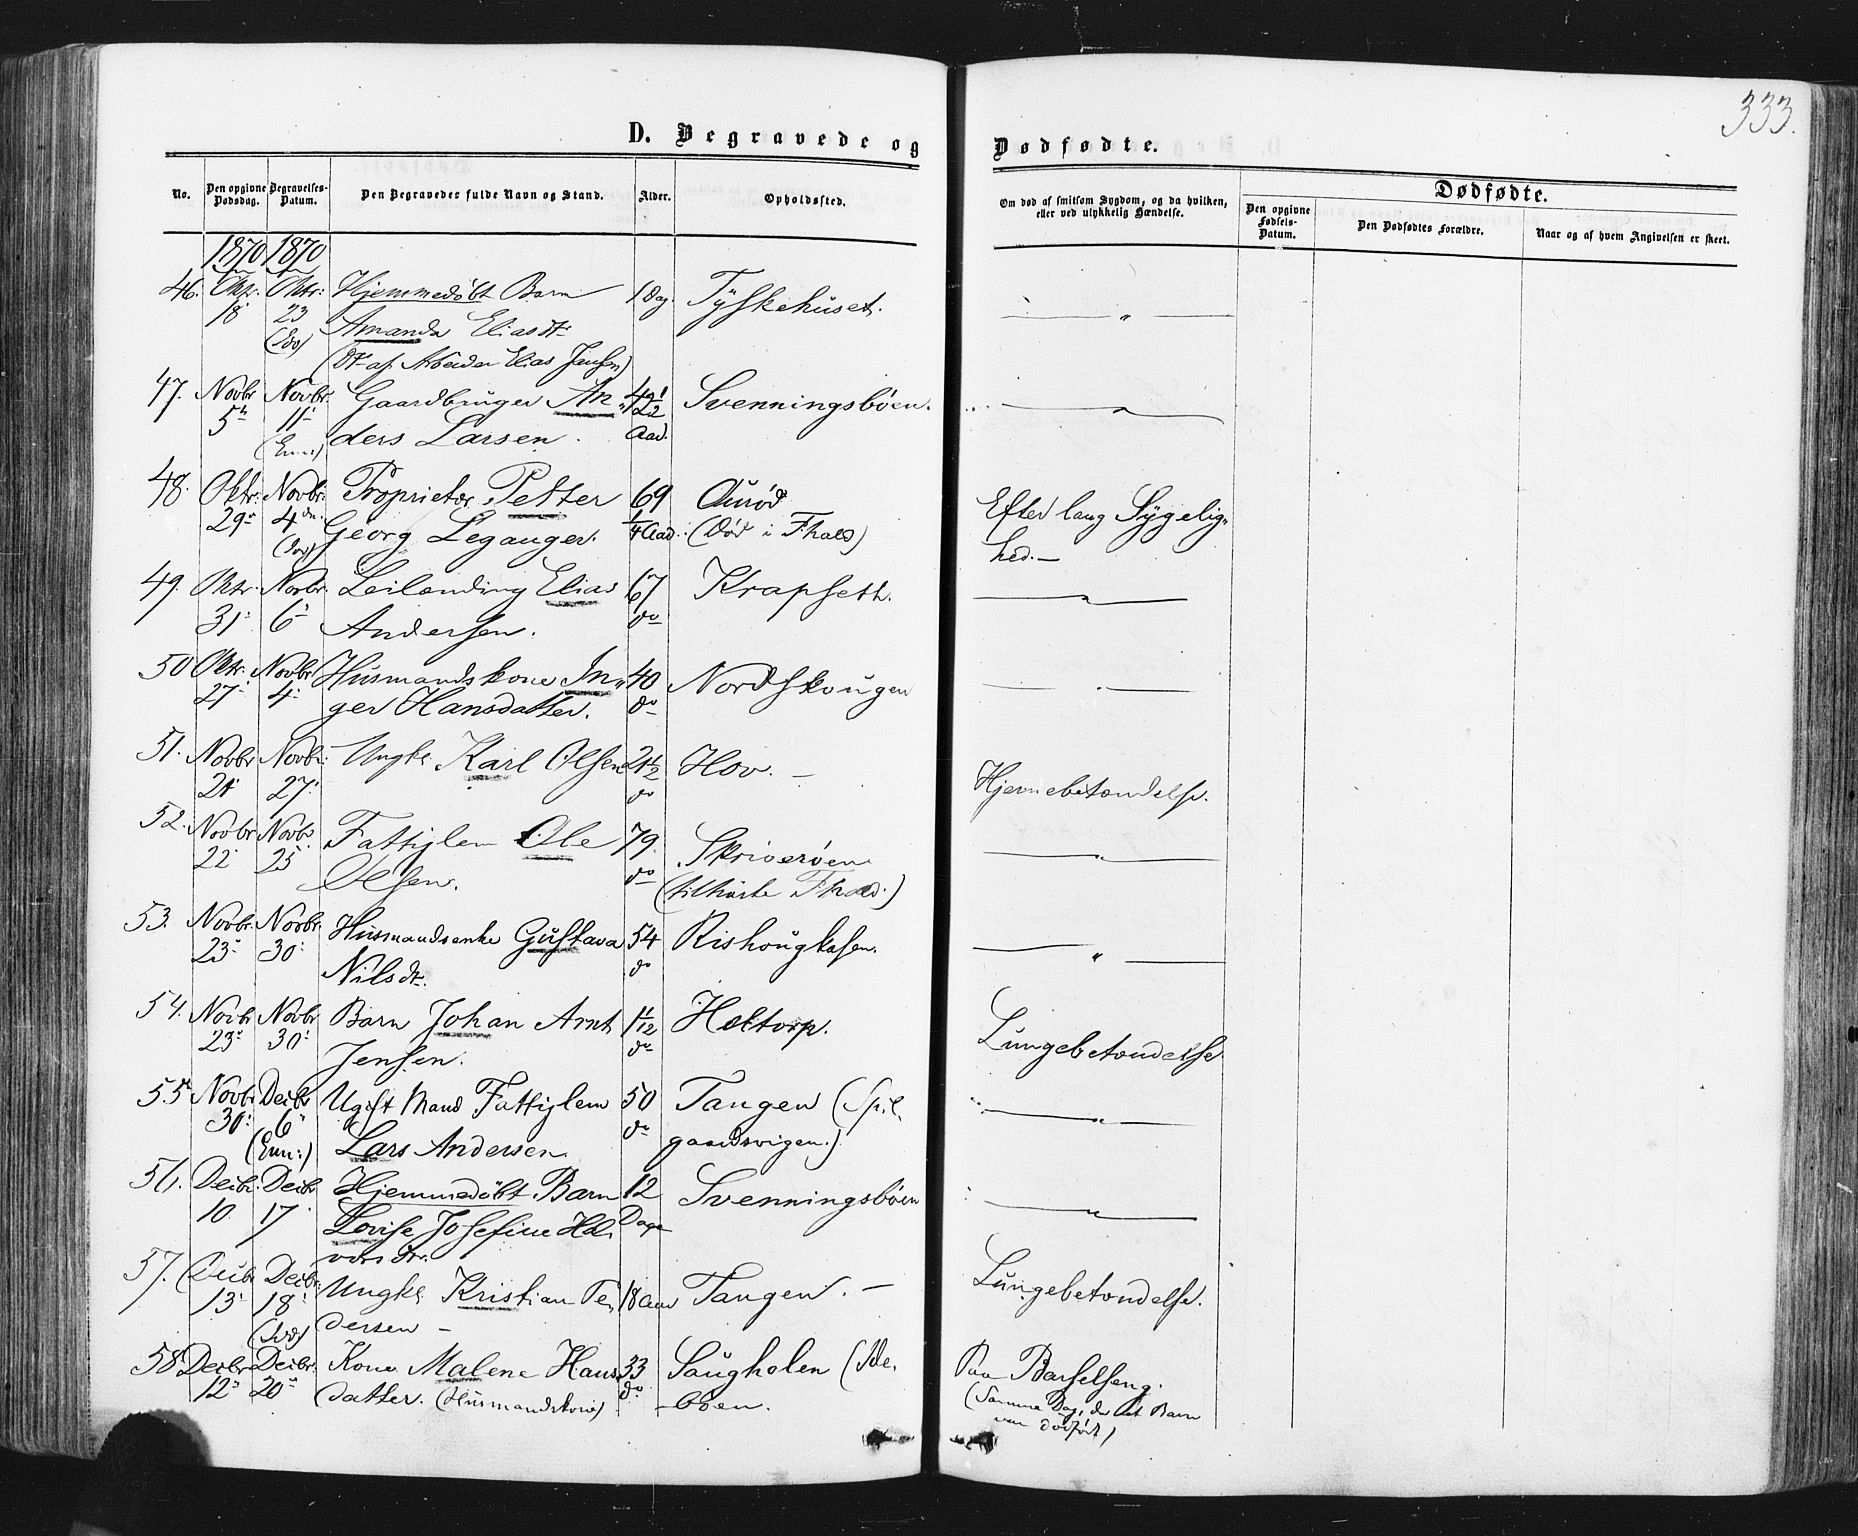 333.
D. Begravede og Dødfødte.
No. Den opgivne Dødsdag. Begravelses-Datum. Den Begravedes fulde Navn og Stand. Alder. Opholdssted. Om død af smitsom Sygdom, og da hvilken, eller ved ulykkelig Hændelse. Dødfødte.
Den opgivne Fødsels-Datum. Den Dødfødtes Forældre. Naar og af hvem Angivelsen er skeet.
1870 1870
46. Oktr. Oktr: Hjemmedøbt Barn 1 Dag Tÿskehuset. "
18 23 Amanda Eliasdt:
(Dt. af Arbeider Elias Jensen)
47. Novbr Novbr. Gaardbruger An- 49 1/2 Svenningsbøen. "
5 11 ders Larsen. Aar.
48. Oktr: Novbr: Proprietær Petter 69 Aurød Efter lang Sÿgelig-
29 4 Georg Leganger. 1/4 Aar. (Død i Fhald) hed.
49. Oktr. Novbr. Leilending Elias 67 Krapseth. "
31 6 Andersen. do
50 Oktr. Novbr Husmandskone In- 40 Nordskougen "
27 4 ger Hansdatter. do
51. Novbr Novbr. Ungk. Karl Olsen 21 1/2 Hov. Hjernebetændelse.
21 27 do
52. Novbr Novbr. Fattiglem Ole 79. Skriverøen "
22 25 Olsen. do (tilhørte Fhald.)
53. Novbr. Novbr. Husmandsenke Gustava 54 Rishougkasen. "
23 30 Nilsdt. do
54. Novbr Novbr Barn Johan Arnt 1 1/12 Holtorp. Lungebetændelse
23 30 Jensen. do
55 Novbr Decbr Ugift Mand Fattiglem 50 Tangen (Spil- "
30 6 Lars Andersen. do gaardsvigen.)
(Enn:)
56. Decbr. Decbr Hjemmedøbt Barn 12 Svenningsbøen "
10 17 Lovise Josefine Hal- Dage
vorsdtr.
57. Decbr Decbr. Ungk. Kristian Pe- 18 Aar Tangen. Lungebetændelse.
13 18 dersen
58 Decbr Decbr. Kone Malene Hans- 33 Saugholen (Ide- Paa Barselseng.
12 20 datter. (Husmandskone) do -bøen. (Samme Dag, da et Barn
var dødfødt)